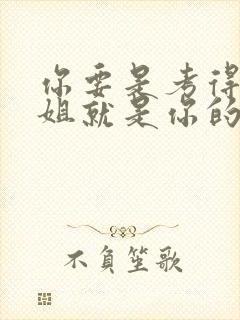 你要是考得
姐就是你的
不負笙歌